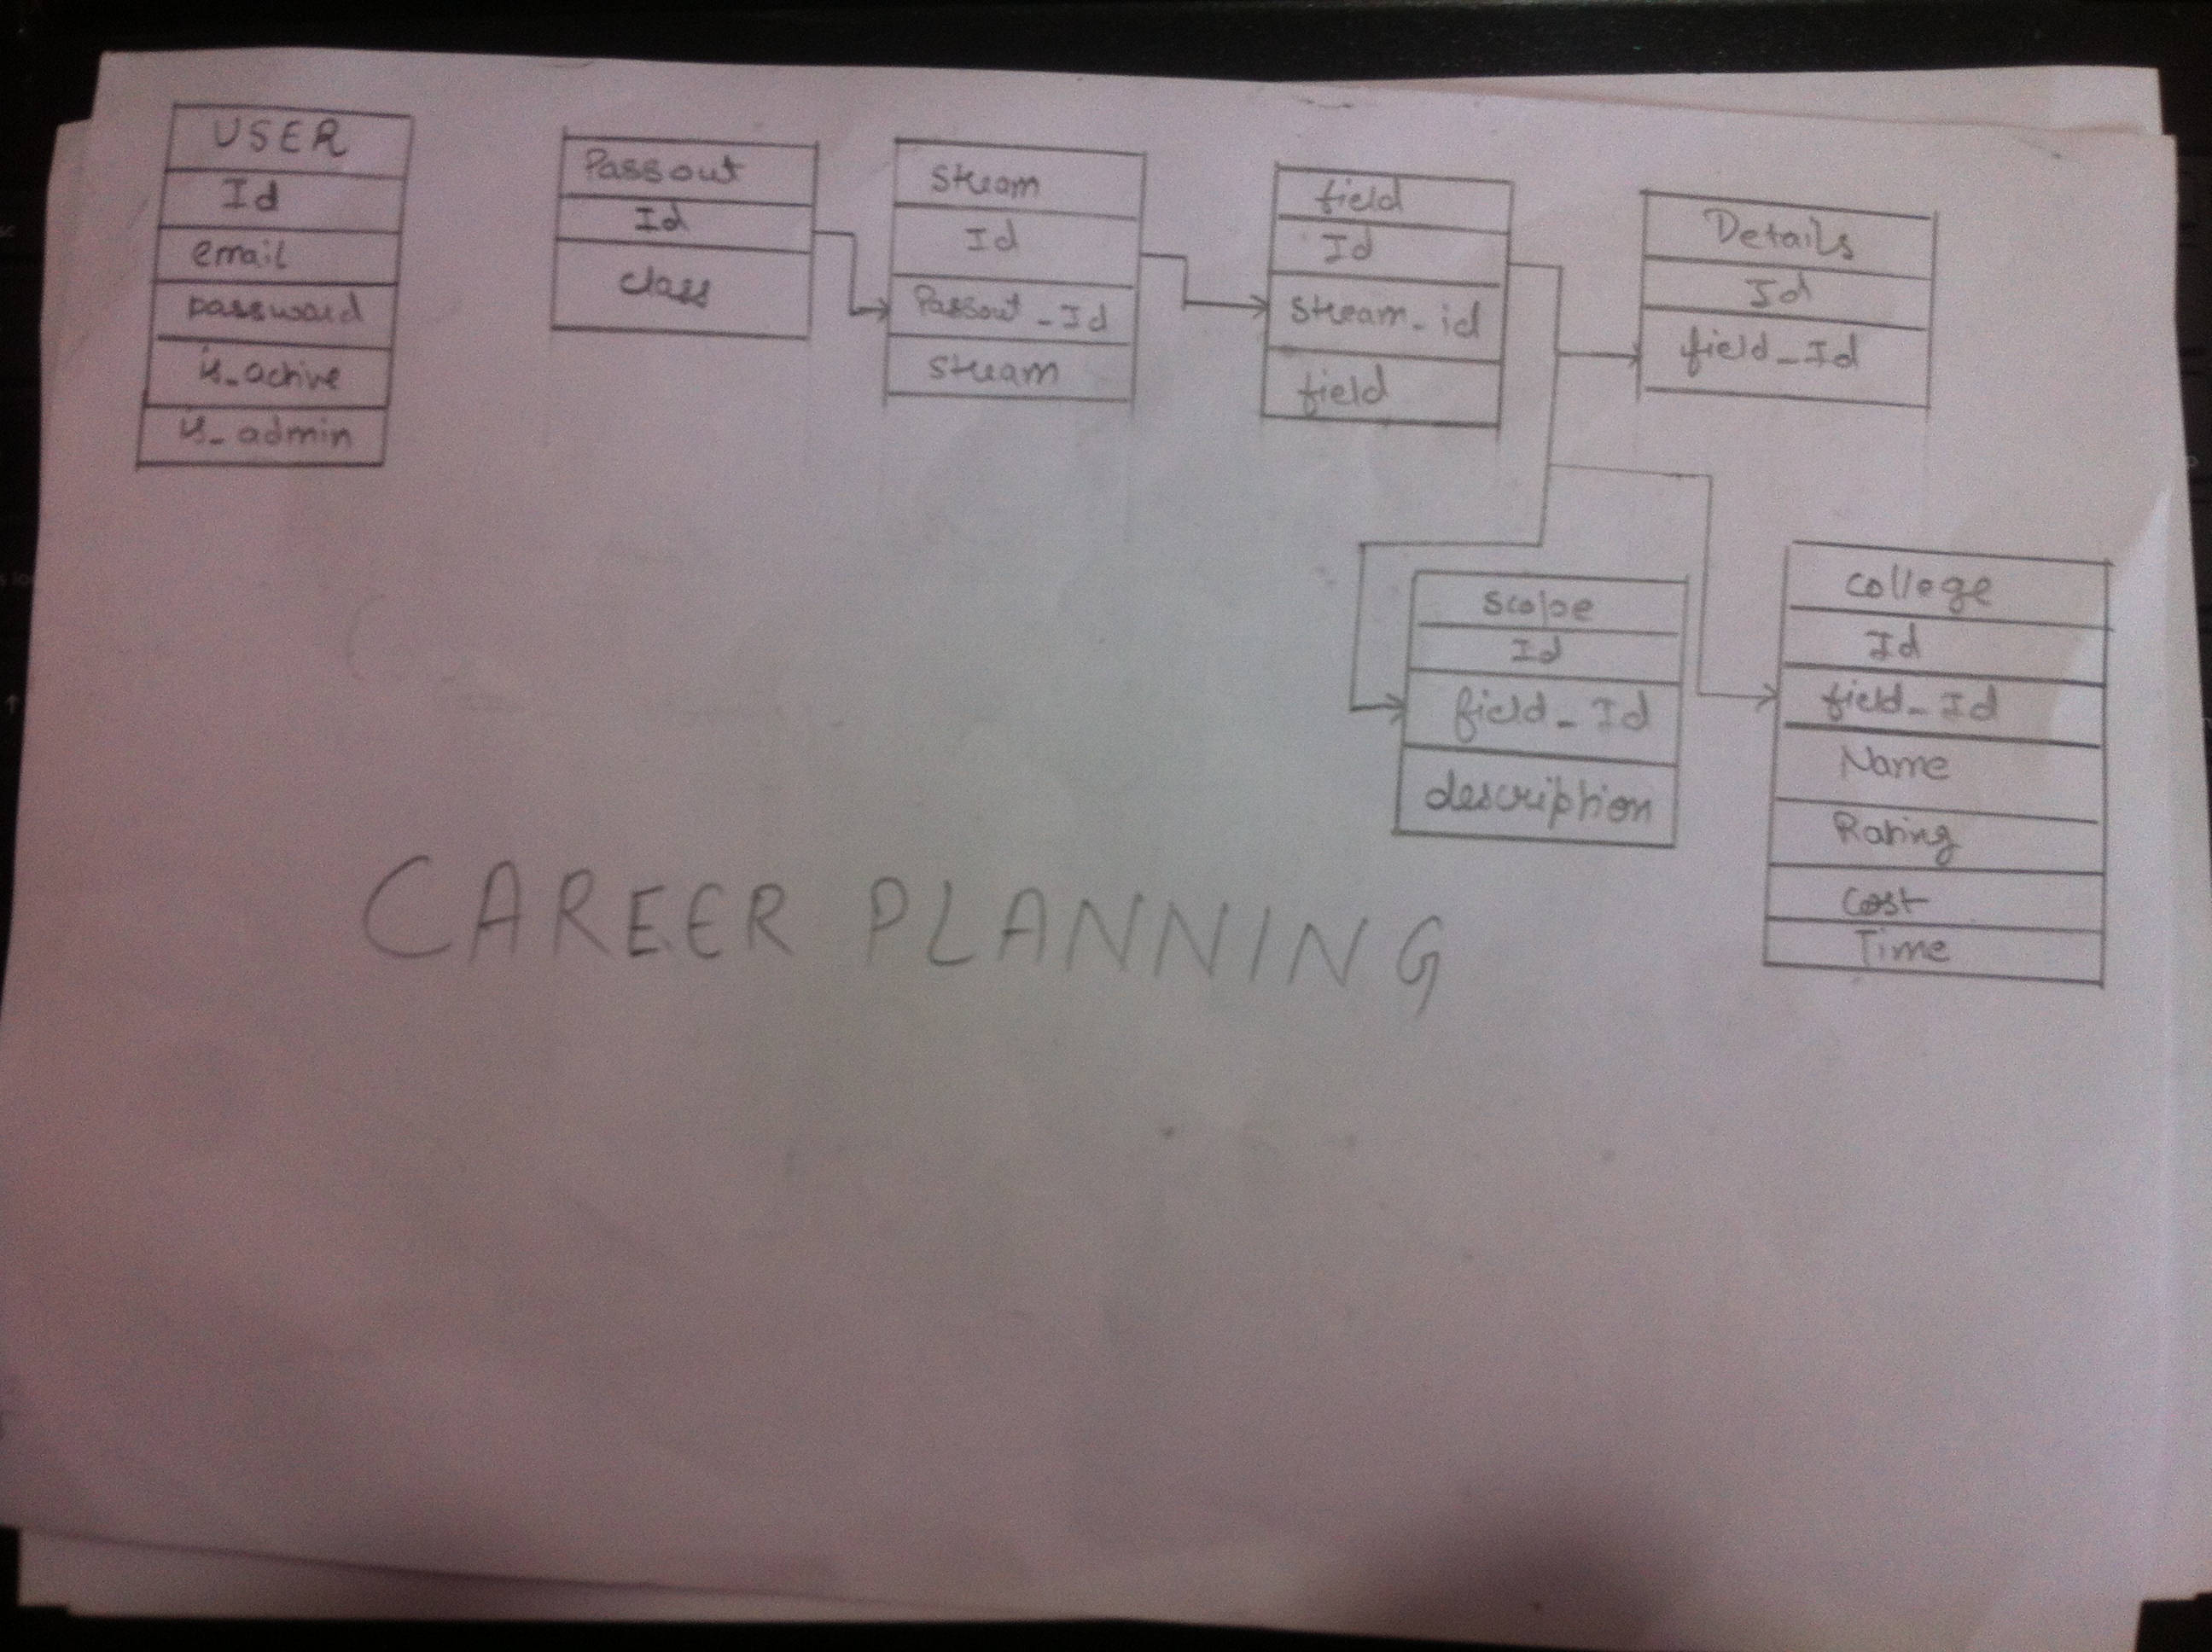 USER
Id
email
password
is_active
is_admin
Passout
Id
class
stream
Id
Passout_Id
stream
field
Id
stream_id
field
Details
Id
field_Id
scope
Id
field_Id
description
college
Id
field_Id
Name
Rating
Cost
Time
CAREER PLANNING